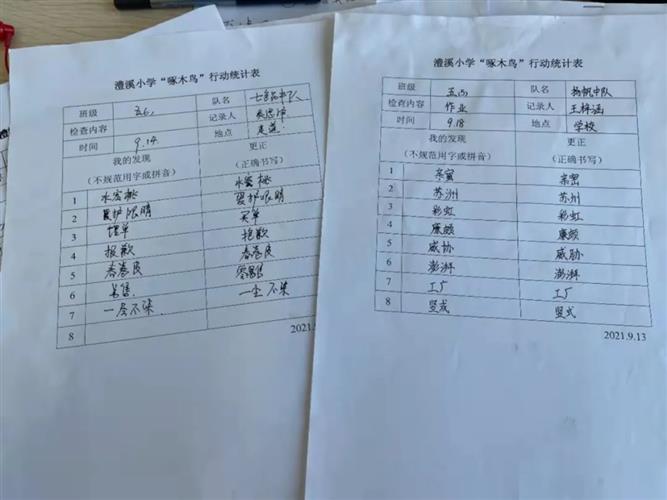 澧溪小学“啄木鸟”行动统计表
班级 队名 七色花中队
检查内容 记录人
时间 9.14 地点 走道
我的发现 更正
(不规范用字或拼音) (正确书写)
1 水宏桃 水蜜桃
2 爱护眼睛
3 埋单 买单
4 报歉 抱歉
5 春卷皮
6 售
7 一层不染 一尘不染
8
2021.
澧溪小学“啄木鸟”行动统计表
班级 队名 杨帆中队
检查内容 作业 记录人 王梓涵
时间 9.18 地点 学校
我的发现 更正
(不规范用字或拼音) (正确书写)
1 亲蜜 亲密
2 苏洲 苏州
3 彩虹 彩虹
4 廉颇 廉颇
5 威协 威胁
6 澎湃 澎湃
7 工厂 工厂
8 竖式
2021.9.13